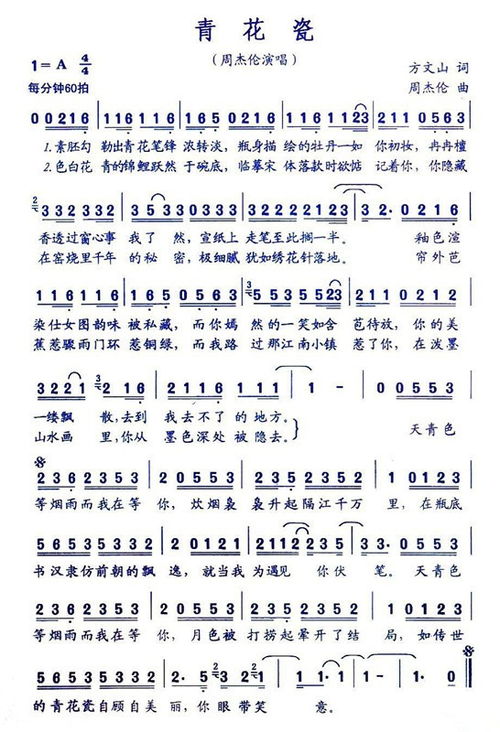 青花瓷
(周杰伦演唱)
1=A 4/4
方文山 词
每分钟60拍
周杰伦 曲
0 0 2 1 6 | 1 1 6 1 1 6 | 1 1 6 1 1 6 | 1 1 6 1 1 2 3 | 2 1 1 0 5 6 3 |
1.素胚勾 勒出青花笔锋 浓转淡，瓶身描 绘的牡丹一如 你初妆，冉冉檀
2.色白花 青的锦鲤跃然 于碗底，临摹宋 体落款时欲惦 记着你，你隐藏
3 3 2 3 3 2 | 3 5 3 3 0 3 3 3 | 3 2 2 2 2 1 2 3 | 3 2· 0 2 1 6 |
香透过窗心事 我了 然，宣纸上 走笔至此搁一半。 釉色渲
在窑烧里千年 的秘 密，极细腻 犹如绣花针落地。 帘外芭
1 1 6 1 1 6 | 1 1 6 1 1 6 | 1 1 6 1 2 | 5 5 3 5 5 2 3 | 2 1 1 0 2 1 2 |
染仕女图韵味 被私藏，而你嫣 然的一笑如含 苞待放，你的美
蕉惹骤雨门环 惹铜绿，而我路 过那江南小镇 惹了你，在泼墨
3 2 2 1 2 1 6 | 0 2 1 6 1 1 1 | 1 - 0 0 5 5 5 |
一缕飘 散，去到 我去不了 的地方。
山水画 里，你从 墨色深处 被隐去。
天青色
2 3 6 2 3 5 3 | 2 0 5 5 3 | 2 3 5 2 3 3 2 | 1 0 5 5 3 |
等烟雨而我在等 你，炊烟袅 袅升起隔江千万 里，在瓶底
5 6 5 3 5 5 3 2 | 2 0 1 2 1 | 2 1 2 2 3 3 | 3 2 2· 0 5 5 5 |
书汉隶仿前朝的飘 逸，就当我 为遇见 你伏 笔。天青色
2 3 6 2 3 5 3 | 2 0 5 5 3 | 2 3 5 2 3 3 2 | 1 0 5 5 3 |
等烟雨而我在等 你，月色被 打捞起晕开了结 局，如传世
5 6 5 3 5 5 3 2 | 2 0 5 3 2 2 | 1 - | 1 1· 1 - 0 |
的青花瓷自顾自美 丽，你眼带笑 意。